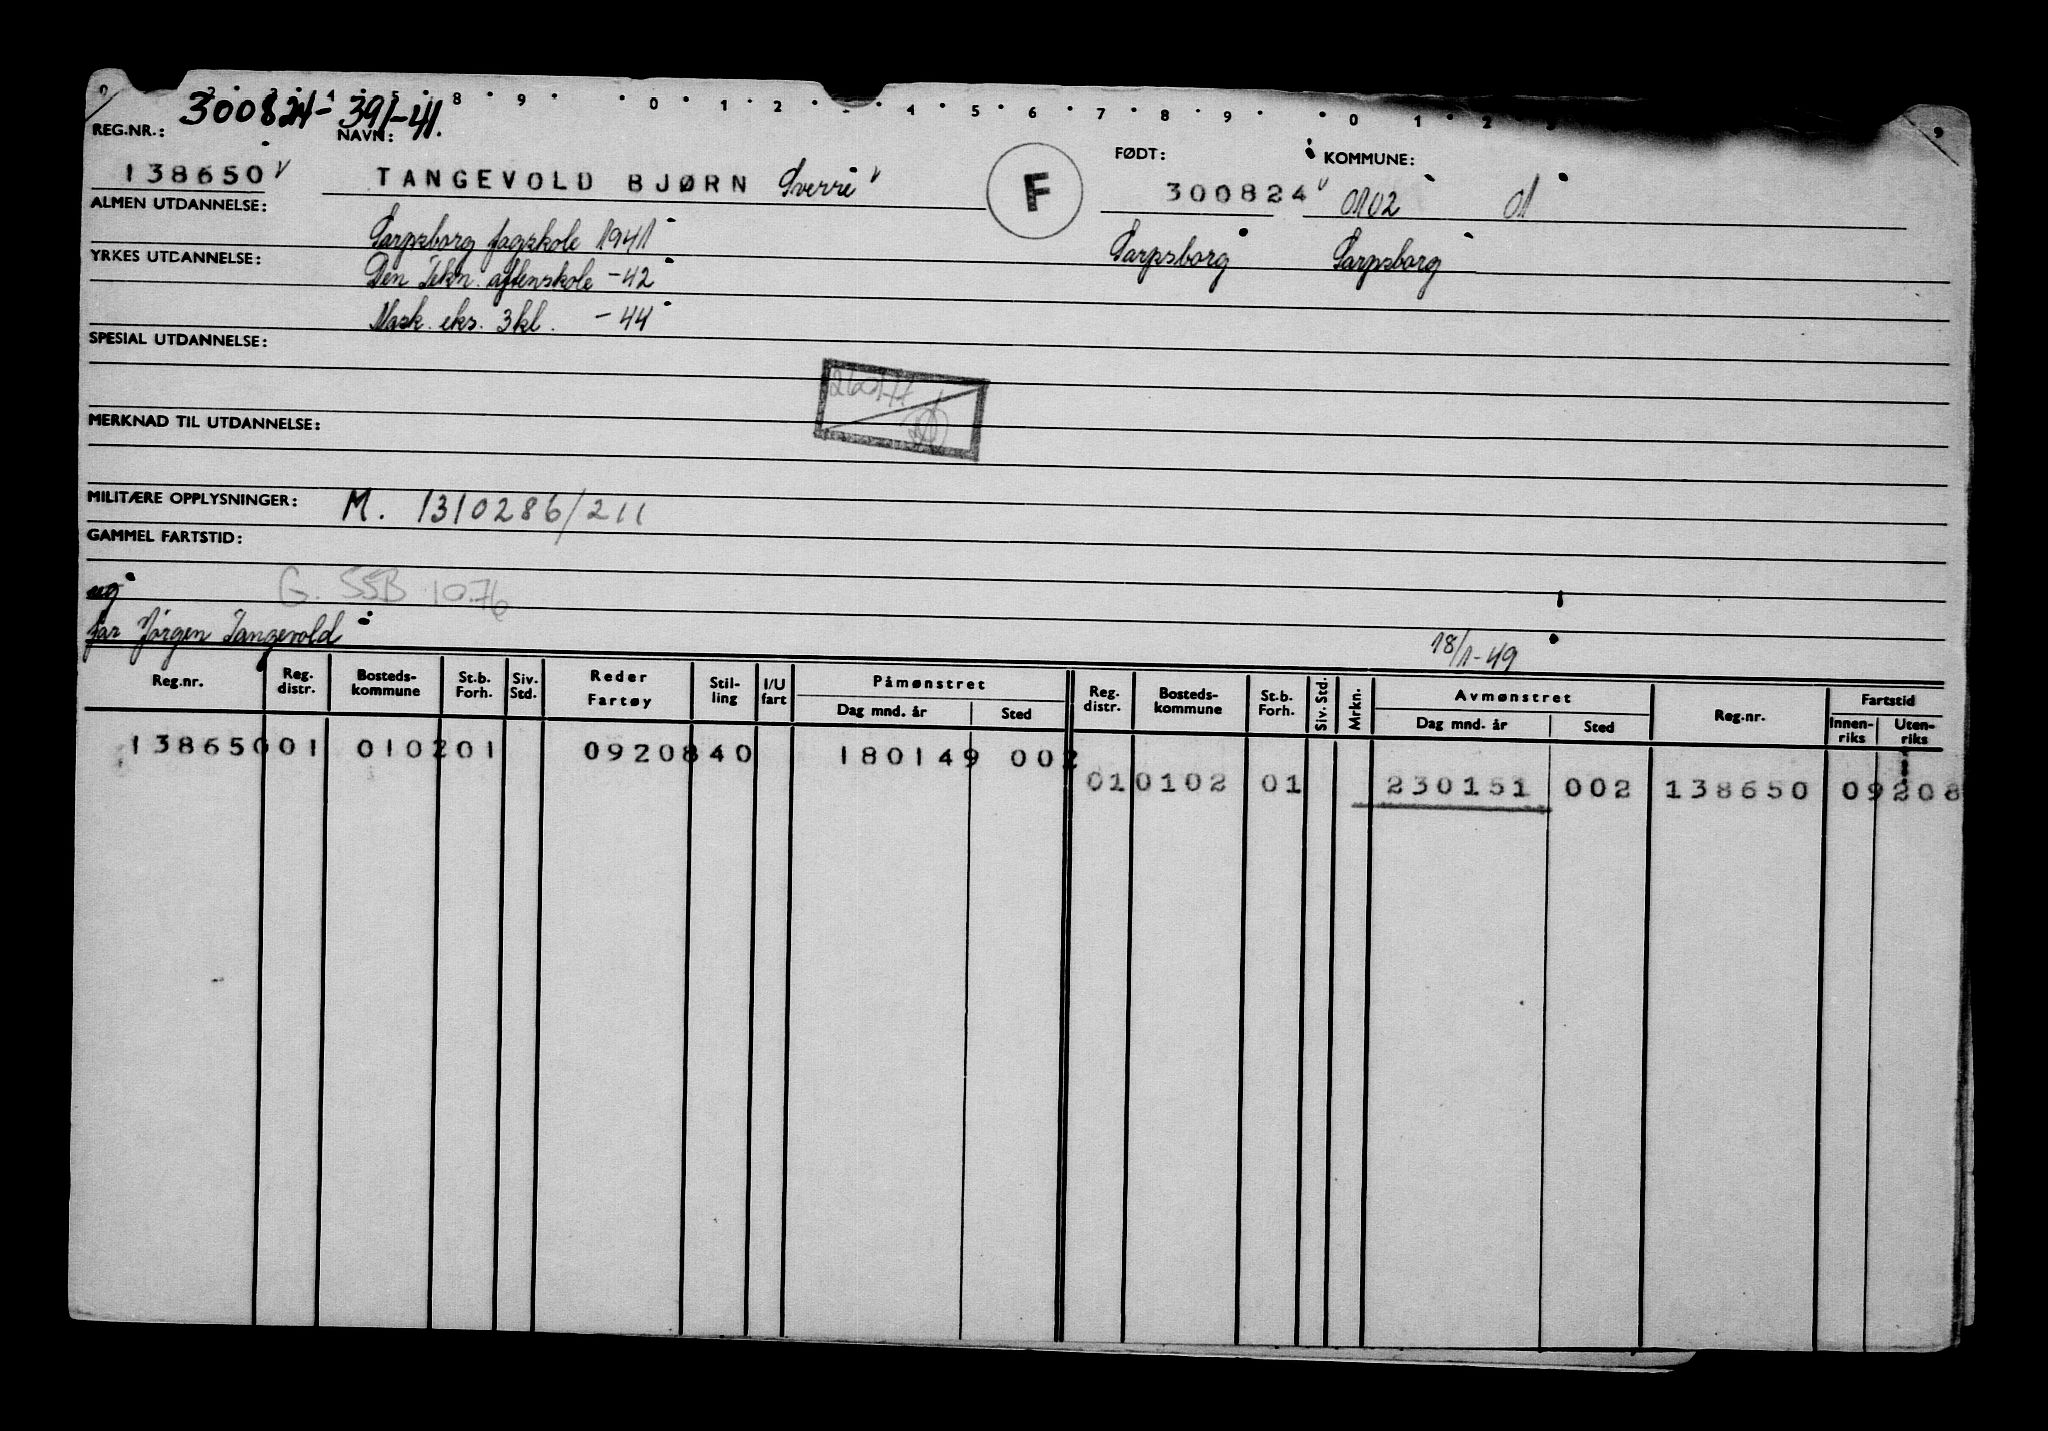 300824-391-41.
REG.NR.: NAVN: FØDT: KOMMUNE:
138650 v TANGEVOLD BJØRN Sverre v F 300824 v 0102 01
ALMEN UTDANNELSE: Sarpsborg fagskole 1941 Sarpsborg Sarpsborg
YRKES UTDANNELSE: Den Tekn. aftenskole -42
Mask. eks. 3kl. -44
SPESIAL UTDANNELSE:
MERKNAD TIL UTDANNELSE:
MILITÆRE OPPLYSNINGER: M. 1310286/211
GAMMEL FARTSTID:
ug G. SSB 10.76
far Jørgen Tangevold 18/1-49
Reg.nr. Reg. distr. Bosteds-kommune St.b. Forh. Siv. Std. Reder Fartøy Stil-ling I/U fart Påmønstret Dag mnd. år Sted Reg. distr. Bosteds-kommune St.b. Forh. Siv. Std. Mrkn. Avmønstret Dag mnd. år Sted Reg.nr. Fartstid Innen-riks Uten-riks
138650 01 0102 01 09208 40 180149 002
01 0102 01 230151 002 138650 09208